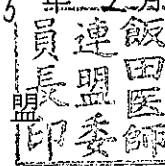 飯田医師
連盟委
員長印
盟